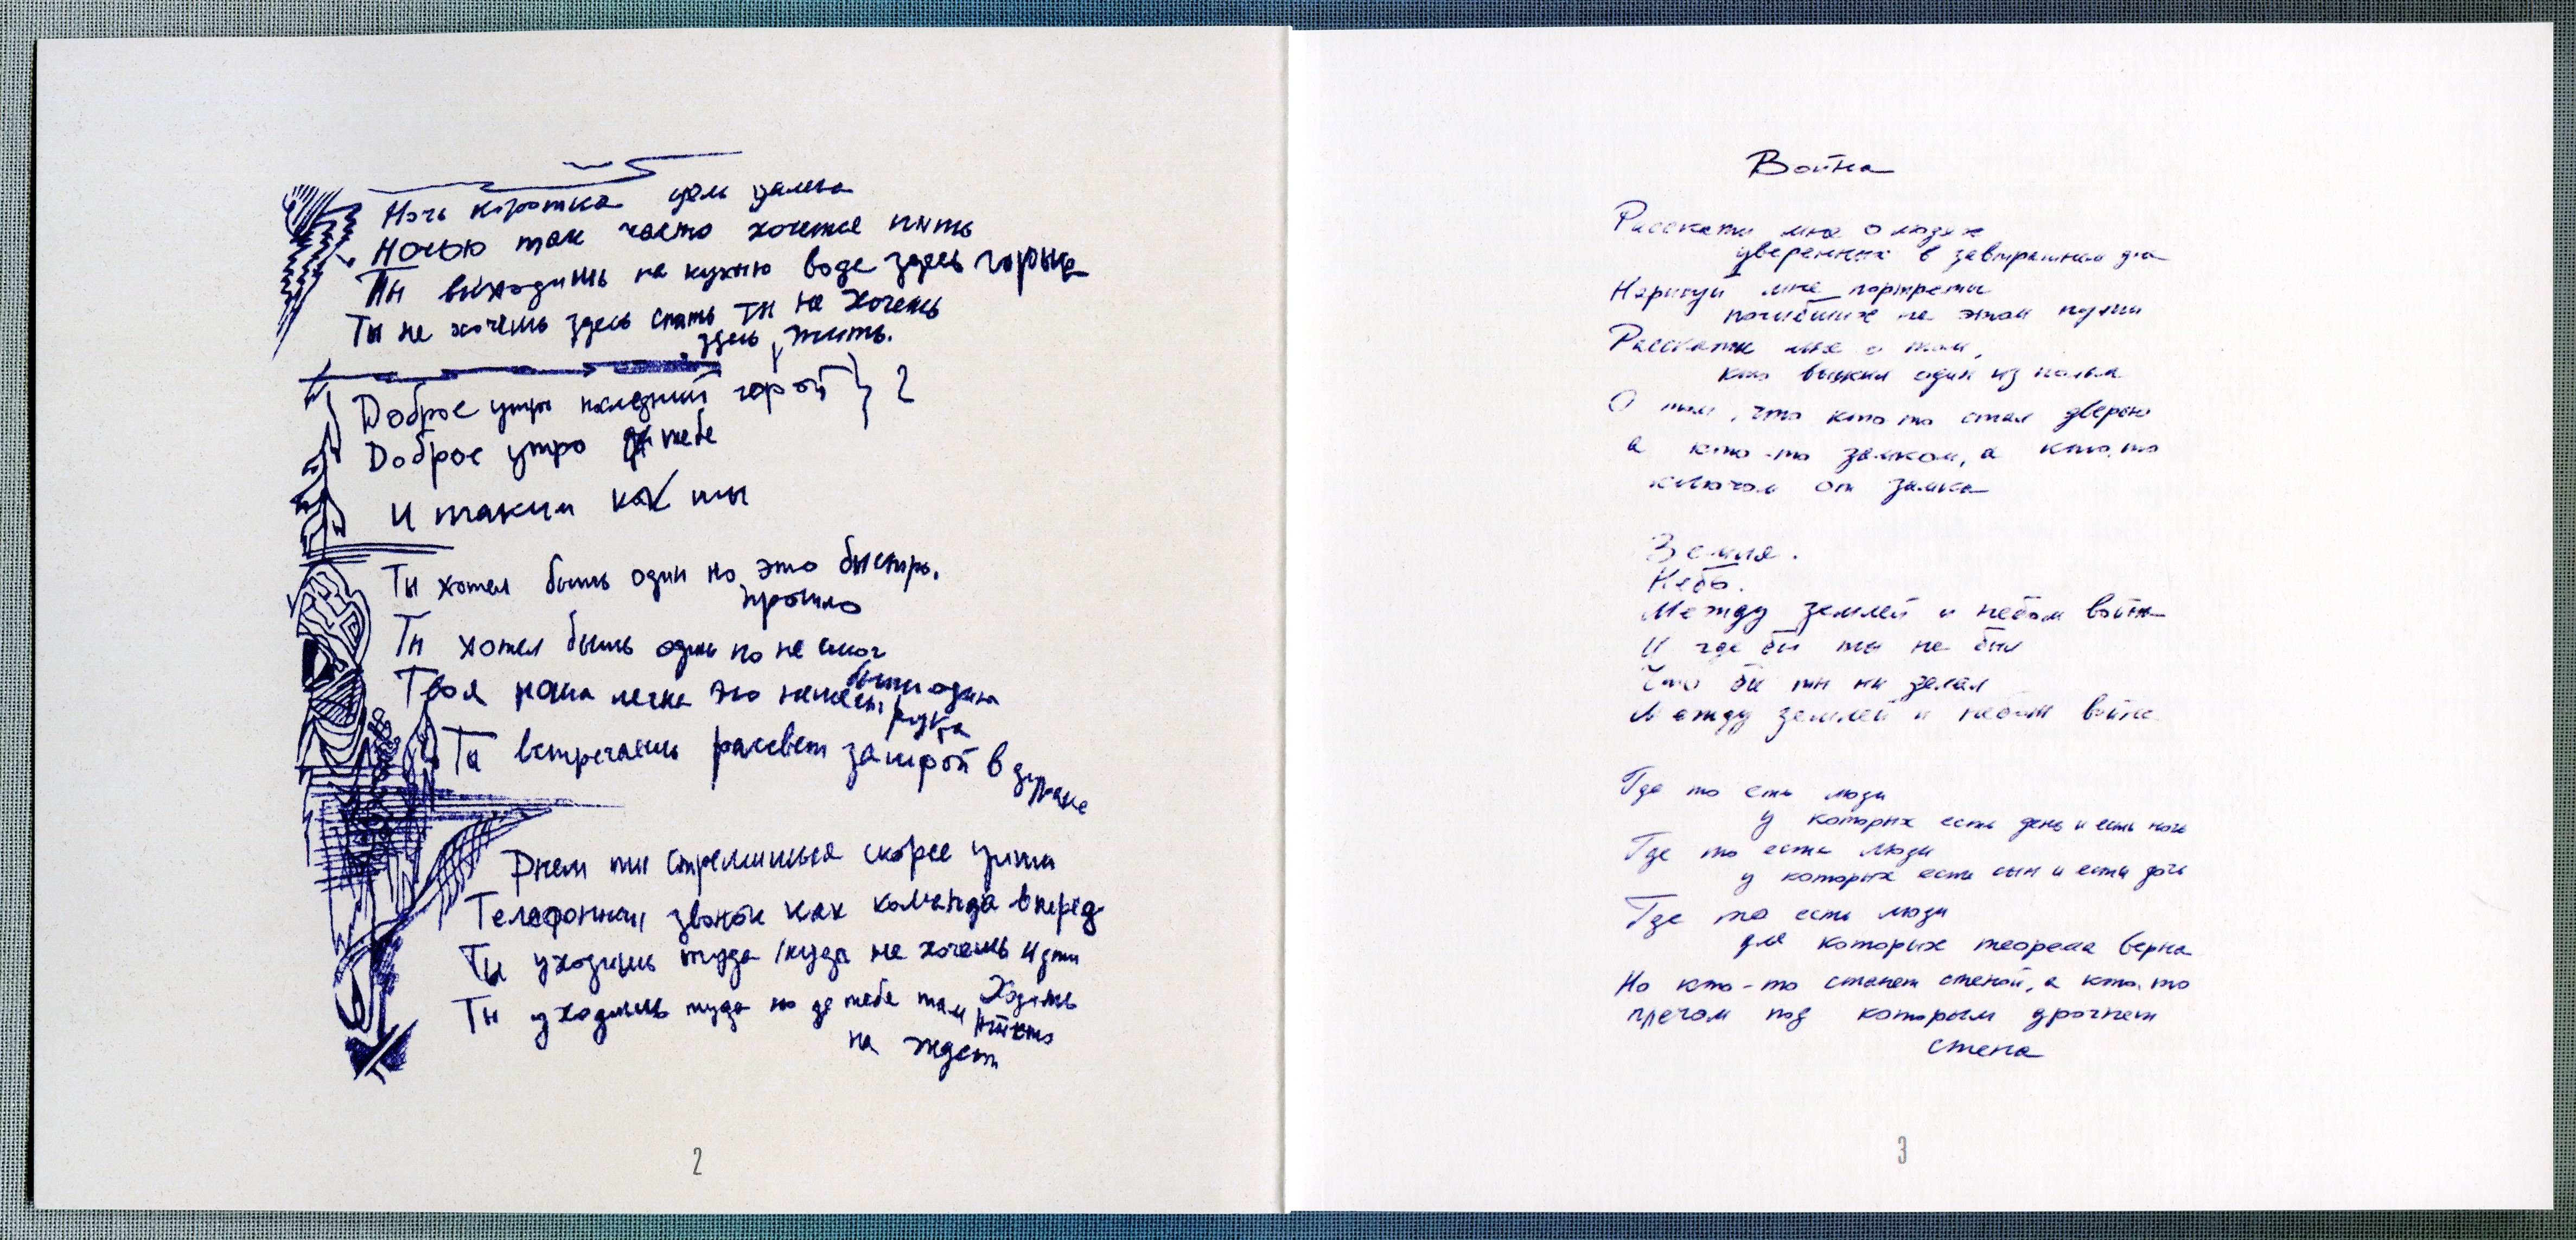 Ночь коротка цель далека
Ночью так часто хочется пить
Ты выходишь на кухню вода здесь горька
Ты не хочешь здесь спать ты не хочешь
здесь жить.
Доброе утро последний герой } 2
Доброе утро тебе
и таким как ты
Ты хотел быть один но это быстро
прошло
Ты хотел быть один но не смог
быть один
Твоя ноша легка но немеет рука
Ты встречаешь рассвет за игрой в дурака
Днем ты стремишься скорее уйти
Телефонный звонок как команда вперед
Ты уходишь туда куда не хочешь идти
Ты уходишь туда но тебя там
никто
не ждет
2
Война
Расскажи мне о людях
уверенных в завтрашнем дне
Нарисуй мне портреты
погибших на этом пути
Расскажи мне о том,
кто выжил один из полка
О том, что кто то стал дверью
а кто-то замком, а кто, то
ключом от замка
Земля.
Небо.
Между землей и небом война
И где бы ты не был
Что б ты ни делал
Между землей и небом война
Где то есть люди
у которых есть день и есть ночь
Где то есть люди
у которых есть сын и есть дочь
Где то есть люди
для которых теорема верна
Но кто-то станет стеной, а кто, то
плечом под которым дрогнет
стена
3